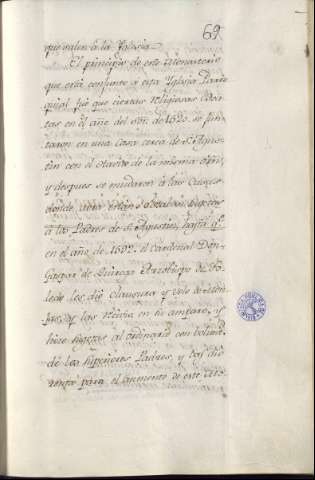 69
que salen á la Yglesia.
El principio de este Monasterio
que está conjunto á esta Yglesia Parro
quial fué que ciertas Religiosas
en el año del Sr. de 1520. se jun
taron en una casa cerca de S. Agus
tin con el clavito de la misma orn,
y despues se mudaron á las Casas
donde aora están y estaban sugetas
á los Padres de S. Agustin, hasta qe.
en el año de 1592. el Cardenal Don
Gaspar de Quiroga Arzobispo de To
ledo les dió Clausura y velo de Mon
jas, y las recivió en su amparo, y
hizo sugetas al ordinario con volund.
de los superiores Padres, y les dió
para el aumento de este Mo